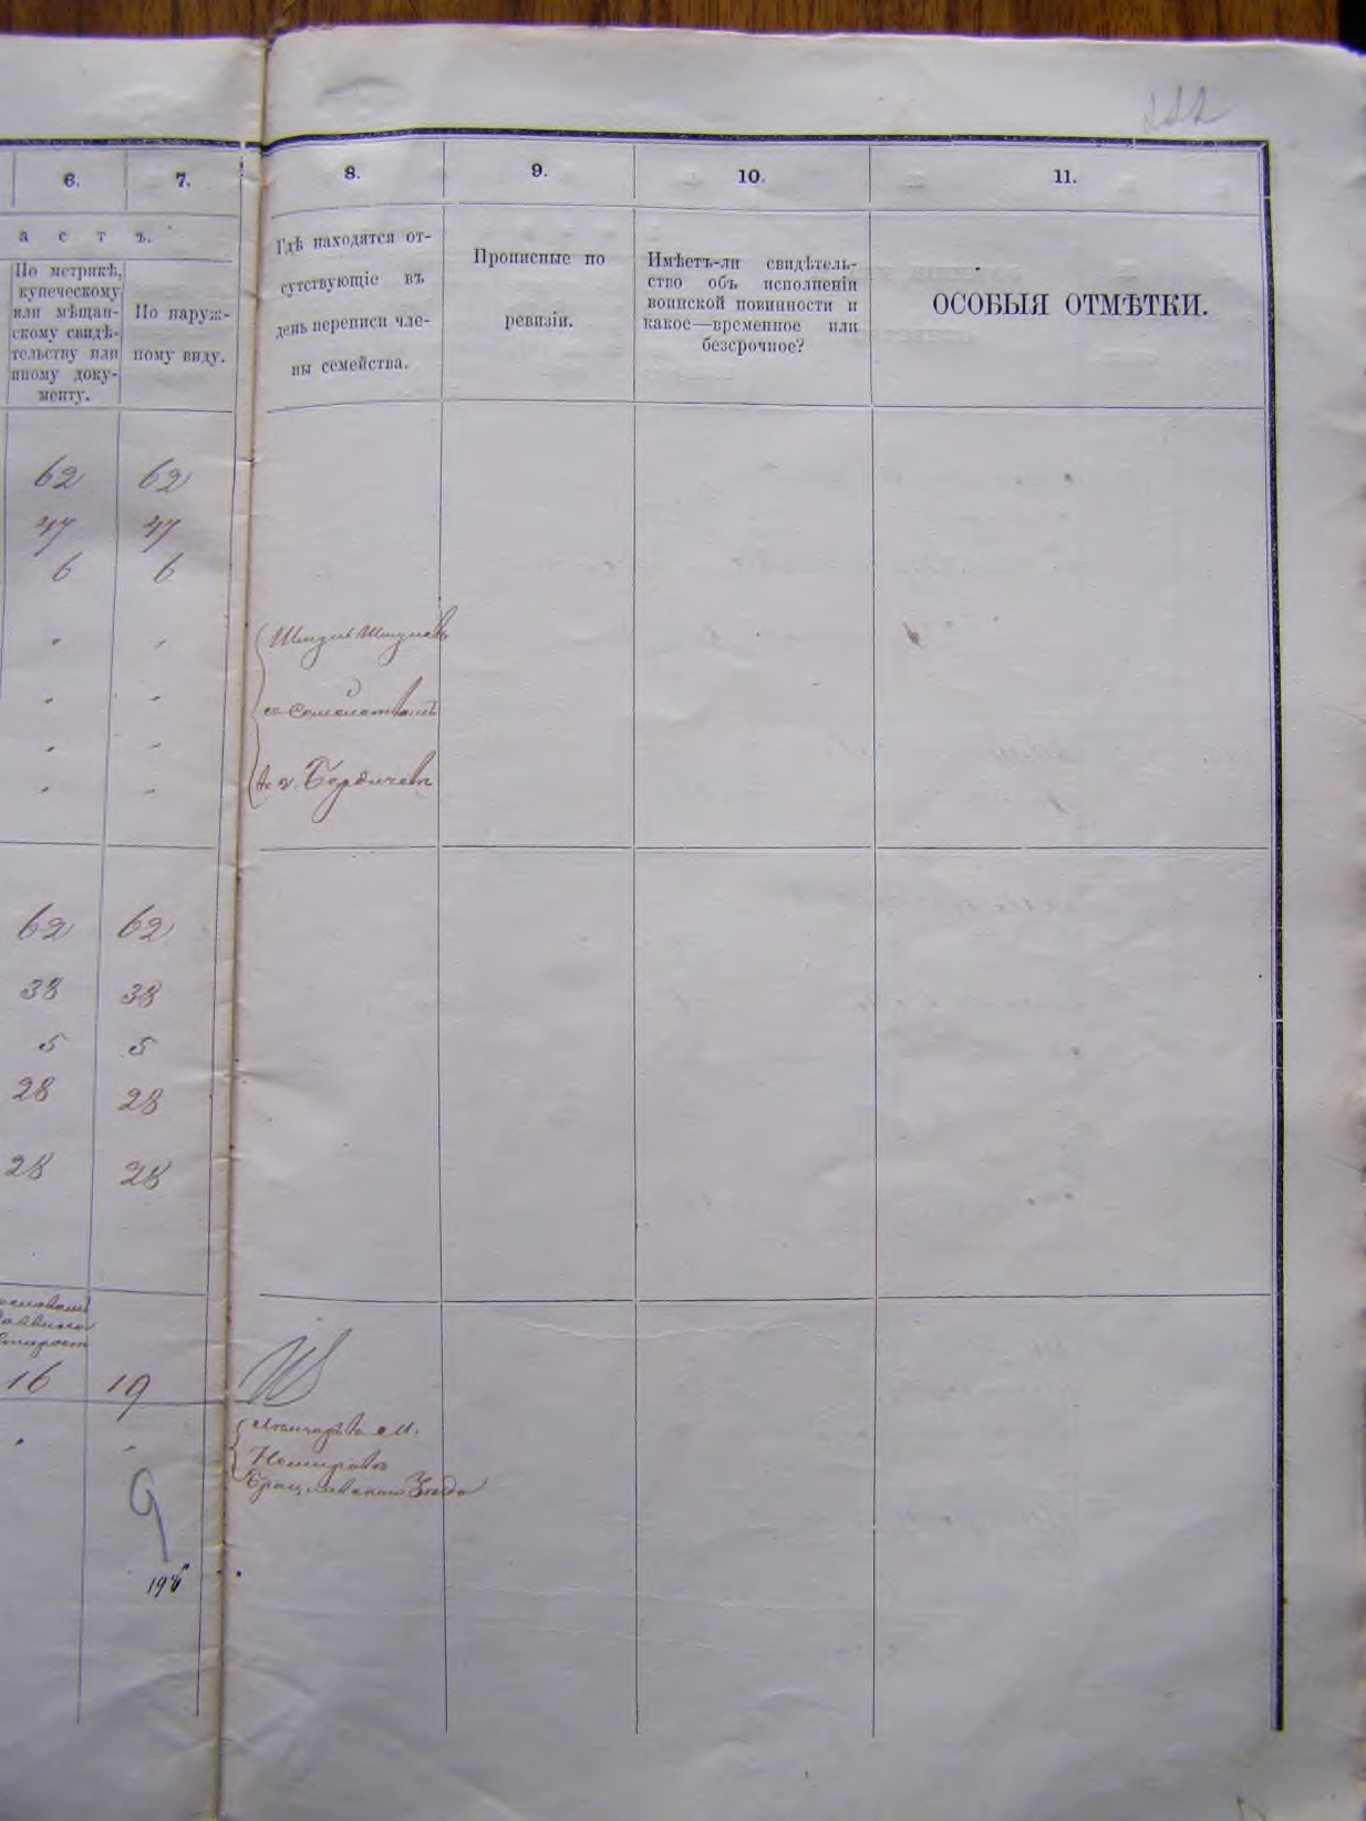 6. 7. 8. 9. 10. 11.
а с т ъ.
По метрикѣ,
купеческому
или мѣщан-
скому свидѣ-
тельству или
иному доку-
менту.
По наруж-
ному виду.
Гдѣ находятся от-
сутствующіе въ
день переписи чле-
ны семейства.
Прописные по
ревизіи.
Имѣетъ-ли свидѣтель-
ство объ исполненіи
воинской повинности и
какое—временное или
безсрочное?
ОСОБЫЯ ОТМѢТКИ.
62 62
47 47
6 6
съ Семействомъ
въ г. Бердичевѣ
62 62
38 38
5 5
28 28
28 28
16 19
м.
Немировъ
Брацлавскаго Уезда